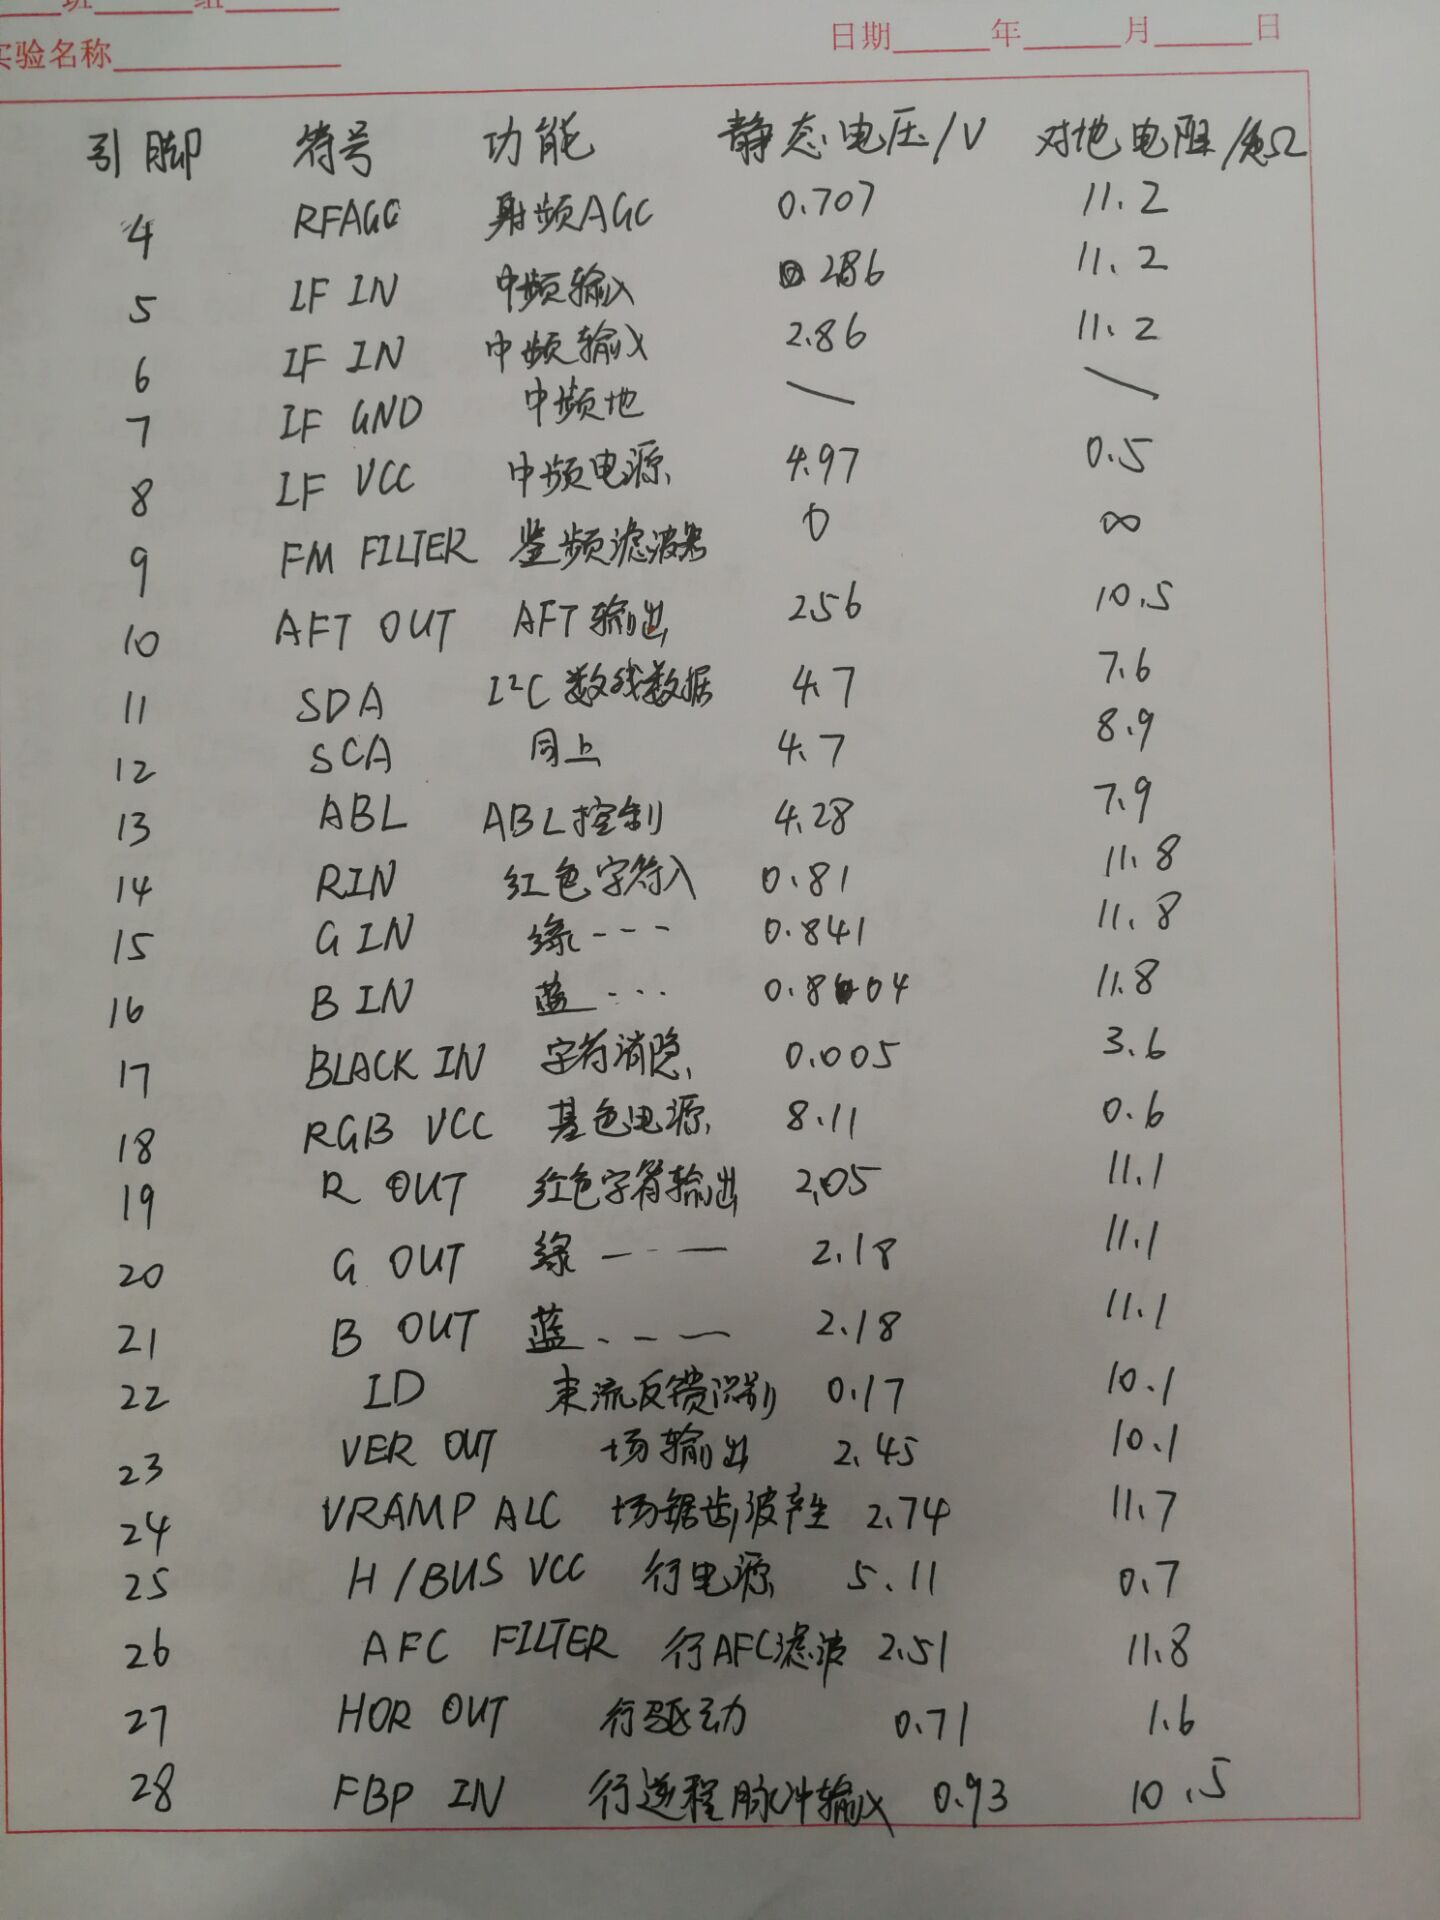 班 组
实验名称
日期 年 月 日
引脚 符号 功能 静态电压/V 对地电阻/Ω
4 RFAGC 射频AGC 0.707 11.2
5 IF IN 中频输入 286 11.2
6 IF IN 中频输入 2.86 11.2
7 IF GND 中频地 — —
8 IF VCC 中频电源 4.97 0.5
9 FM FILTER 鉴频滤波器 0 ∞
10 AFT OUT AFT输出 2.56 10.5
11 SDA I²C数线数据 4.7 7.6
12 SCA 同上 4.7 8.9
13 ABL ABL控制 4.28 7.9
14 RIN 红色字符入 0.81 11.8
15 G IN 绿--- 0.841 11.8
16 B IN 蓝... 0.804 11.8
17 BLACK IN 字符消隐 0.005 3.6
18 RGB VCC 基色电源 8.11 0.6
19 R OUT 红色字符输出 2.05 11.1
20 G OUT 绿---- 2.18 11.1
21 B OUT 蓝.-- 2.18 11.1
22 ID 束流反馈识别 0.17 10.1
23 VER OUT 场输出 2.45 10.1
24 VRAMP ALC 场锯齿波产生 2.74 11.7
25 H/BUS VCC 行电源 5.11 0.7
26 AFC FILTER 行AFC滤波 2.51 11.8
27 HOR OUT 行驱动 0.71 1.6
28 FBP IN 行逆程脉冲输入 0.93 10.5